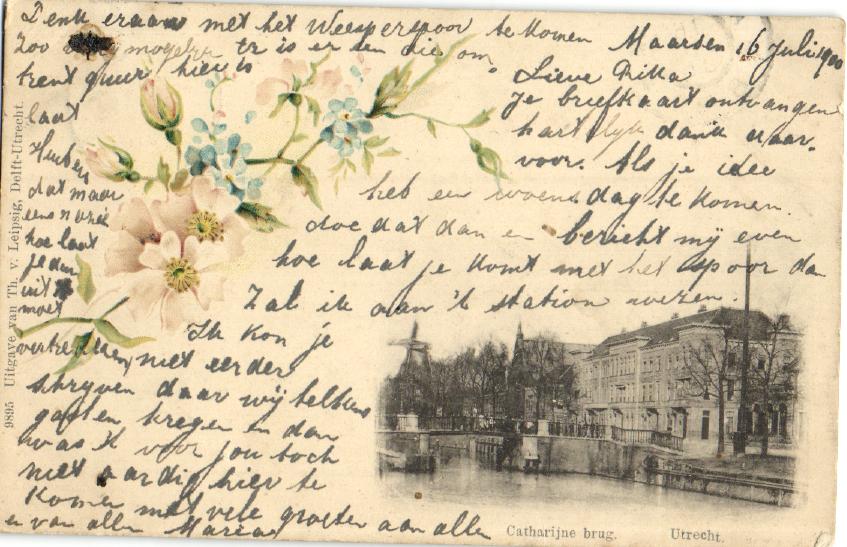 Denk eraan met het Weesperspoor te komen
Zoo mogelijk tr is er een die om
trent quur hier is
Maarsen 16 Juli 1900
Lieve
Je briefkaart ontvangen
hartelyk dank daar
voor. Als je idee
heb een woensdag te komen.
doe dat dan en bericht my even
hoe laat je komt met het spoor dan
Zal ik aan 't station wezen.
Ik kon je
niet eerder
schryven daar wij telkens
gasten kregen en dan
was 't voor jou toch
niet aardig hier te
komen met vele groeten aan allen
en van allen Maria
laat
dat maar
eens
hoe laat
je dan
uit
moet
vertrekken
9895 Uitgave van Th. v. Leipsig, Delft-Utrecht.
Catharijne brug. Utrecht.